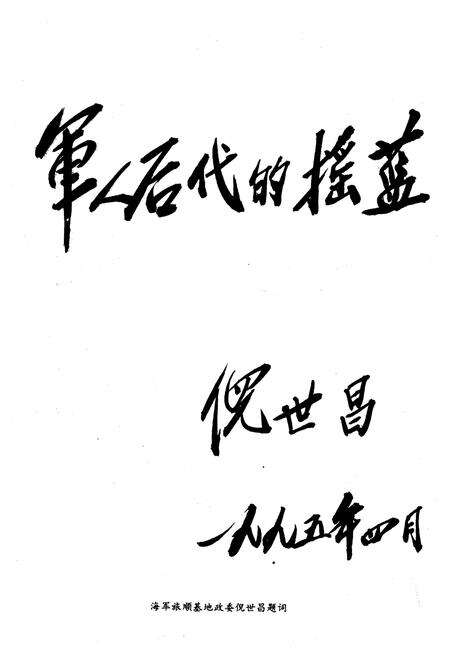 軍人后代的摇蓝
倪世昌
一九九五年四月
海军旅顺基地政委倪世昌题词